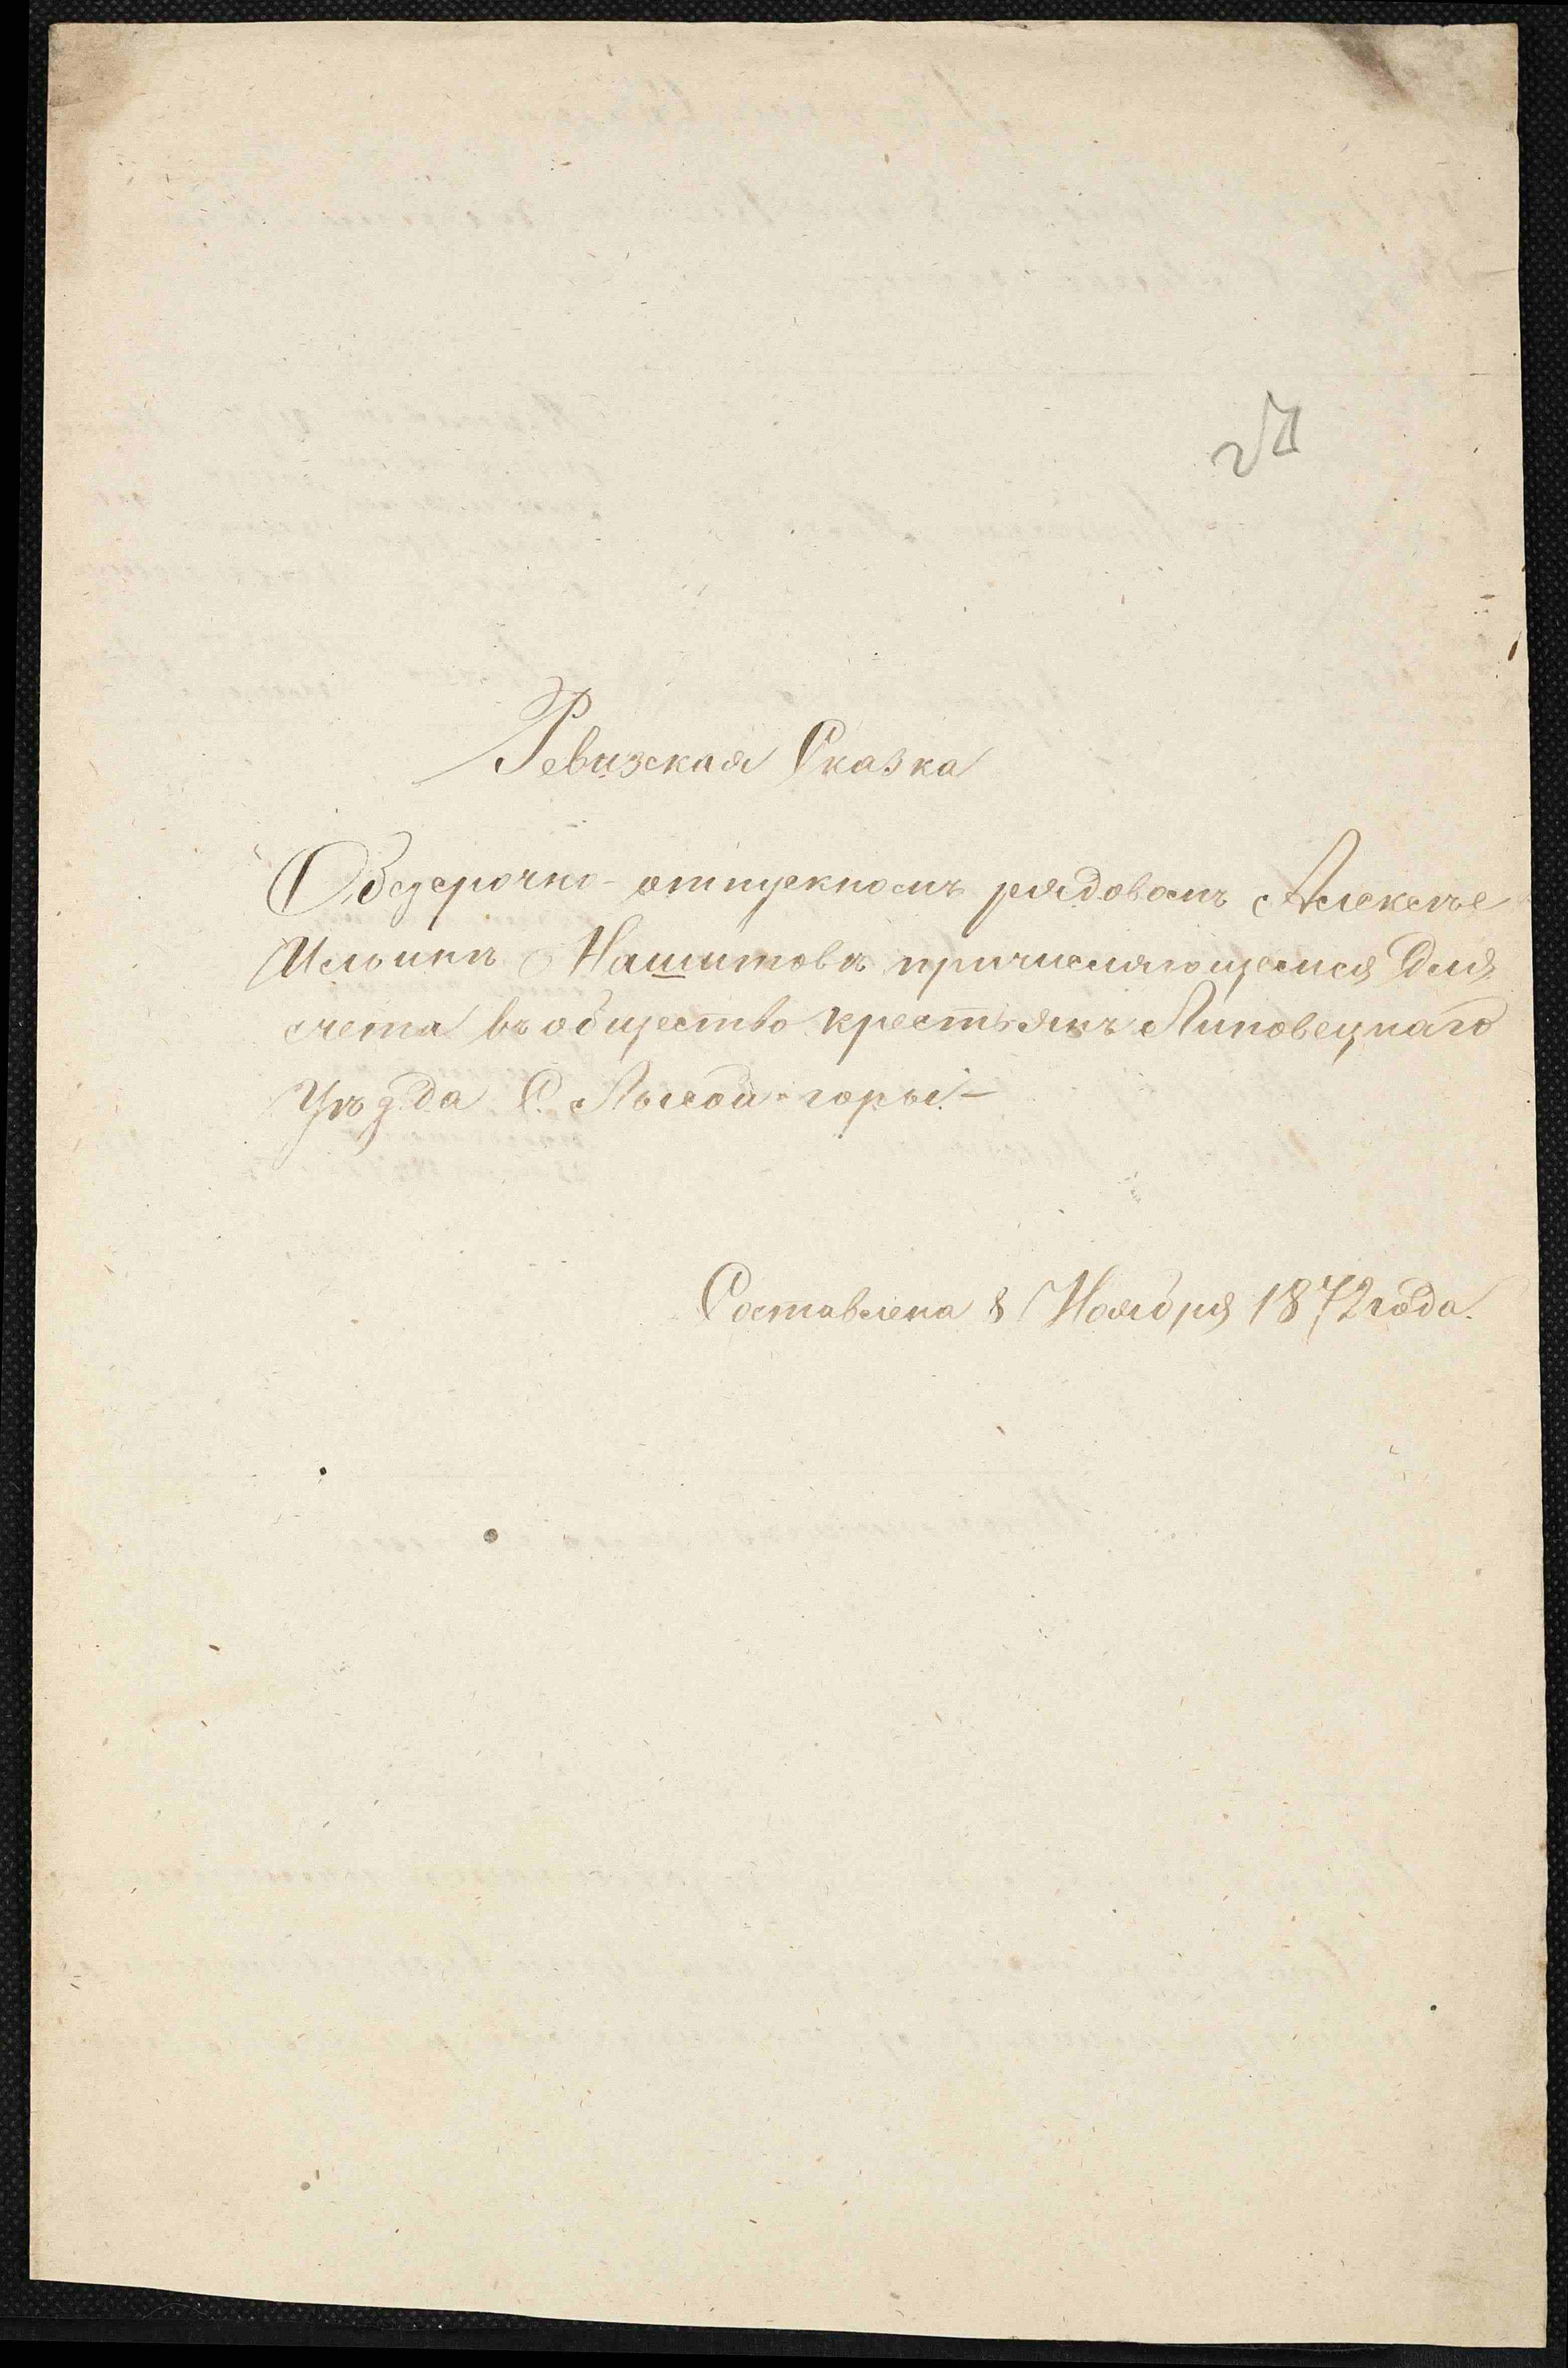 Ревизская Сказка
О безсрочно-отпускномъ рядовомъ Алексѣе
Ильинѣ Нашитовѣ причисляющемся для
счета въ общество крестьянъ Липовецкаго
Уѣзда С. Лысой-горы.-
Составлена 8 Ноября 1872 года.